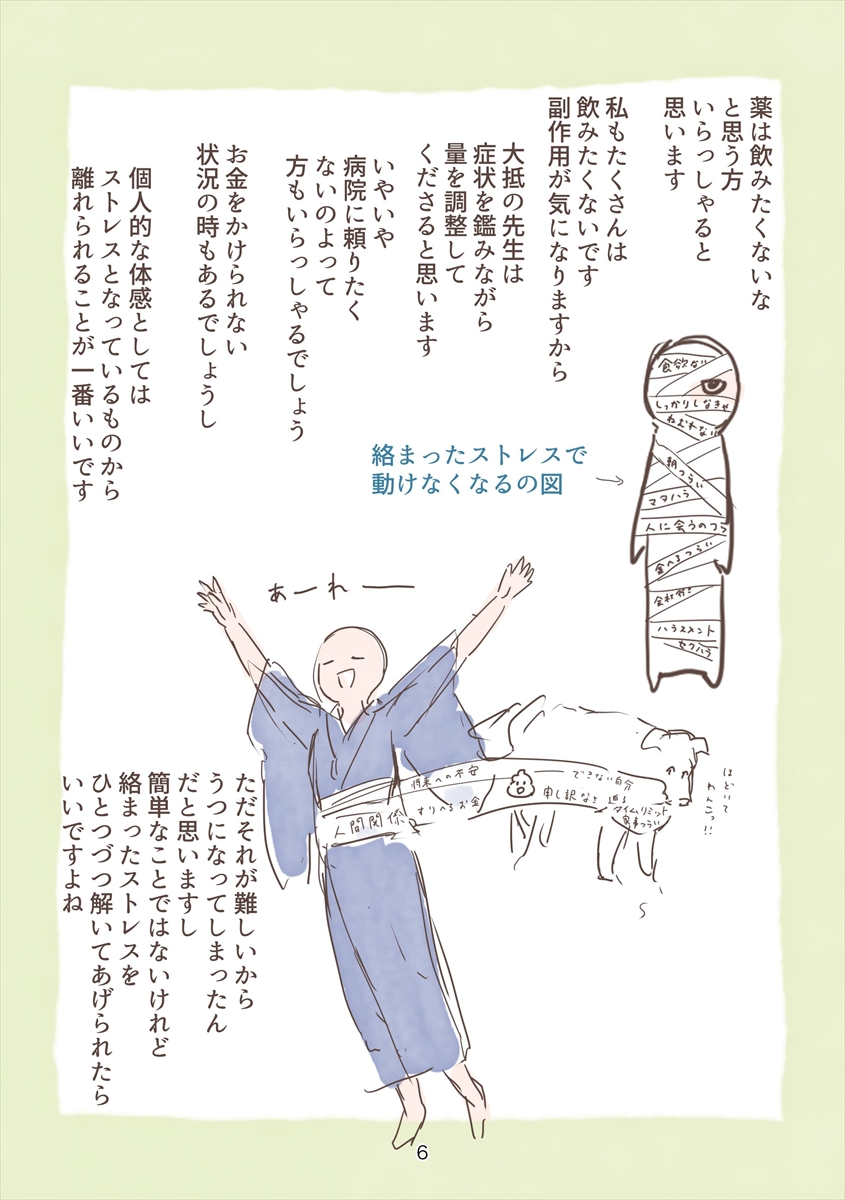 薬は飲みたくないな
と思う方
いらっしゃると
思います
私もたくさんは
飲みたくないです
副作用が気になりますから
大抵の先生は
症状を鑑みながら
量を調整して
くださると思います
いやいや
病院に頼りたく
ないのよって
方もいらっしゃるでしょう
お金をかけられない
状況の時もあるでしょうし
個人的な体感としては
ストレスとなっているものから
離れられることが一番いいです
食欲ない
しっかりしなきゃ
ねむれない
朝つらい
マタハラ
人に会うのつら
食べるつらい
ハラスメント
セクハラ
絡まったストレスで
動けなくなるの図
あーれー
将来への不安
すりへるお金
人間関係
できない自分
申し訳なさ
迫る
タイムリミット
家事つらい
ほどいて
わんこっ!!
ただそれが難しいから
うつになってしまったん
だと思いますし
簡単なことではないけれど
絡まったストレスを
ひとつづつ解いてあげられたら
いいですよね
6